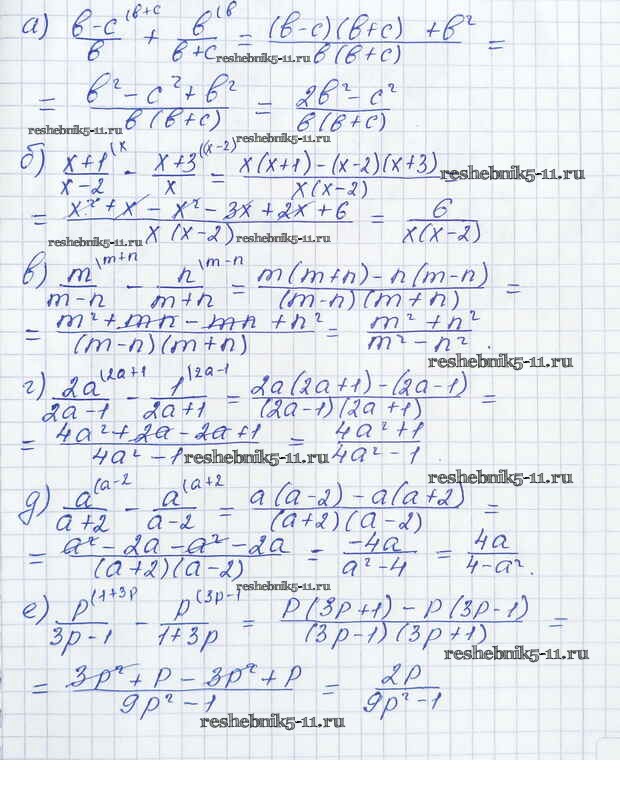 а) (в-с)/в \в+с + в/(в+с) \в = ((в-с)(в+с) + в²)/(в(в+с)) =
reshebnik5-11.ru
= (в² - с² + в²)/(в(в+с)) = (2в² - с²)/(в(в+с))
reshebnik5-11.ru
reshebnik5-11.ru
б) (х+1)/(х-2) \х - (х+3)/х \(х-2) = (х(х+1) - (х-2)(х+3))/(х(х-2)) =
reshebnik5-11.ru
= (х² + х - х² - 3х + 2х + 6)/(х(х-2)) = 6/(х(х-2))
reshebnik5-11.ru reshebnik5-11.ru
в) m/(m-n) \m+n - n/(m+n) \m-n = (m(m+n) - n(m-n))/((m-n)(m+n)) =
= (m² + mn - mn + n²)/((m-n)(m+n)) = (m² + n²)/(m² - n²).
reshebnik5-11.ru
г) 2a/(2a-1) \2a+1 - 1/(2a+1) \2a-1 = (2a(2a+1) - (2a-1))/((2a-1)(2a+1)) =
= (4a² + 2a - 2a + 1)/(4a² - 1) = (4a² + 1)/(4a² - 1).
reshebnik5-11.ru
reshebnik5-11.ru
д) a/(a+2) \a-2 - a/(a-2) \a+2 = (a(a-2) - a(a+2))/((a+2)(a-2)) =
= (a² - 2a - a² - 2a)/((a+2)(a-2)) = -4a/(a²-4) = 4a/(4-a²).
reshebnik5-11.ru
е) p/(3p-1) \1+3p - p/(1+3p) \3p-1 = (p(3p+1) - p(3p-1))/((3p-1)(3p+1)) =
reshebnik5-11.ru
= (3p² + p - 3p² + p)/(9p² - 1) = 2p/(9p² - 1)
reshebnik5-11.ru